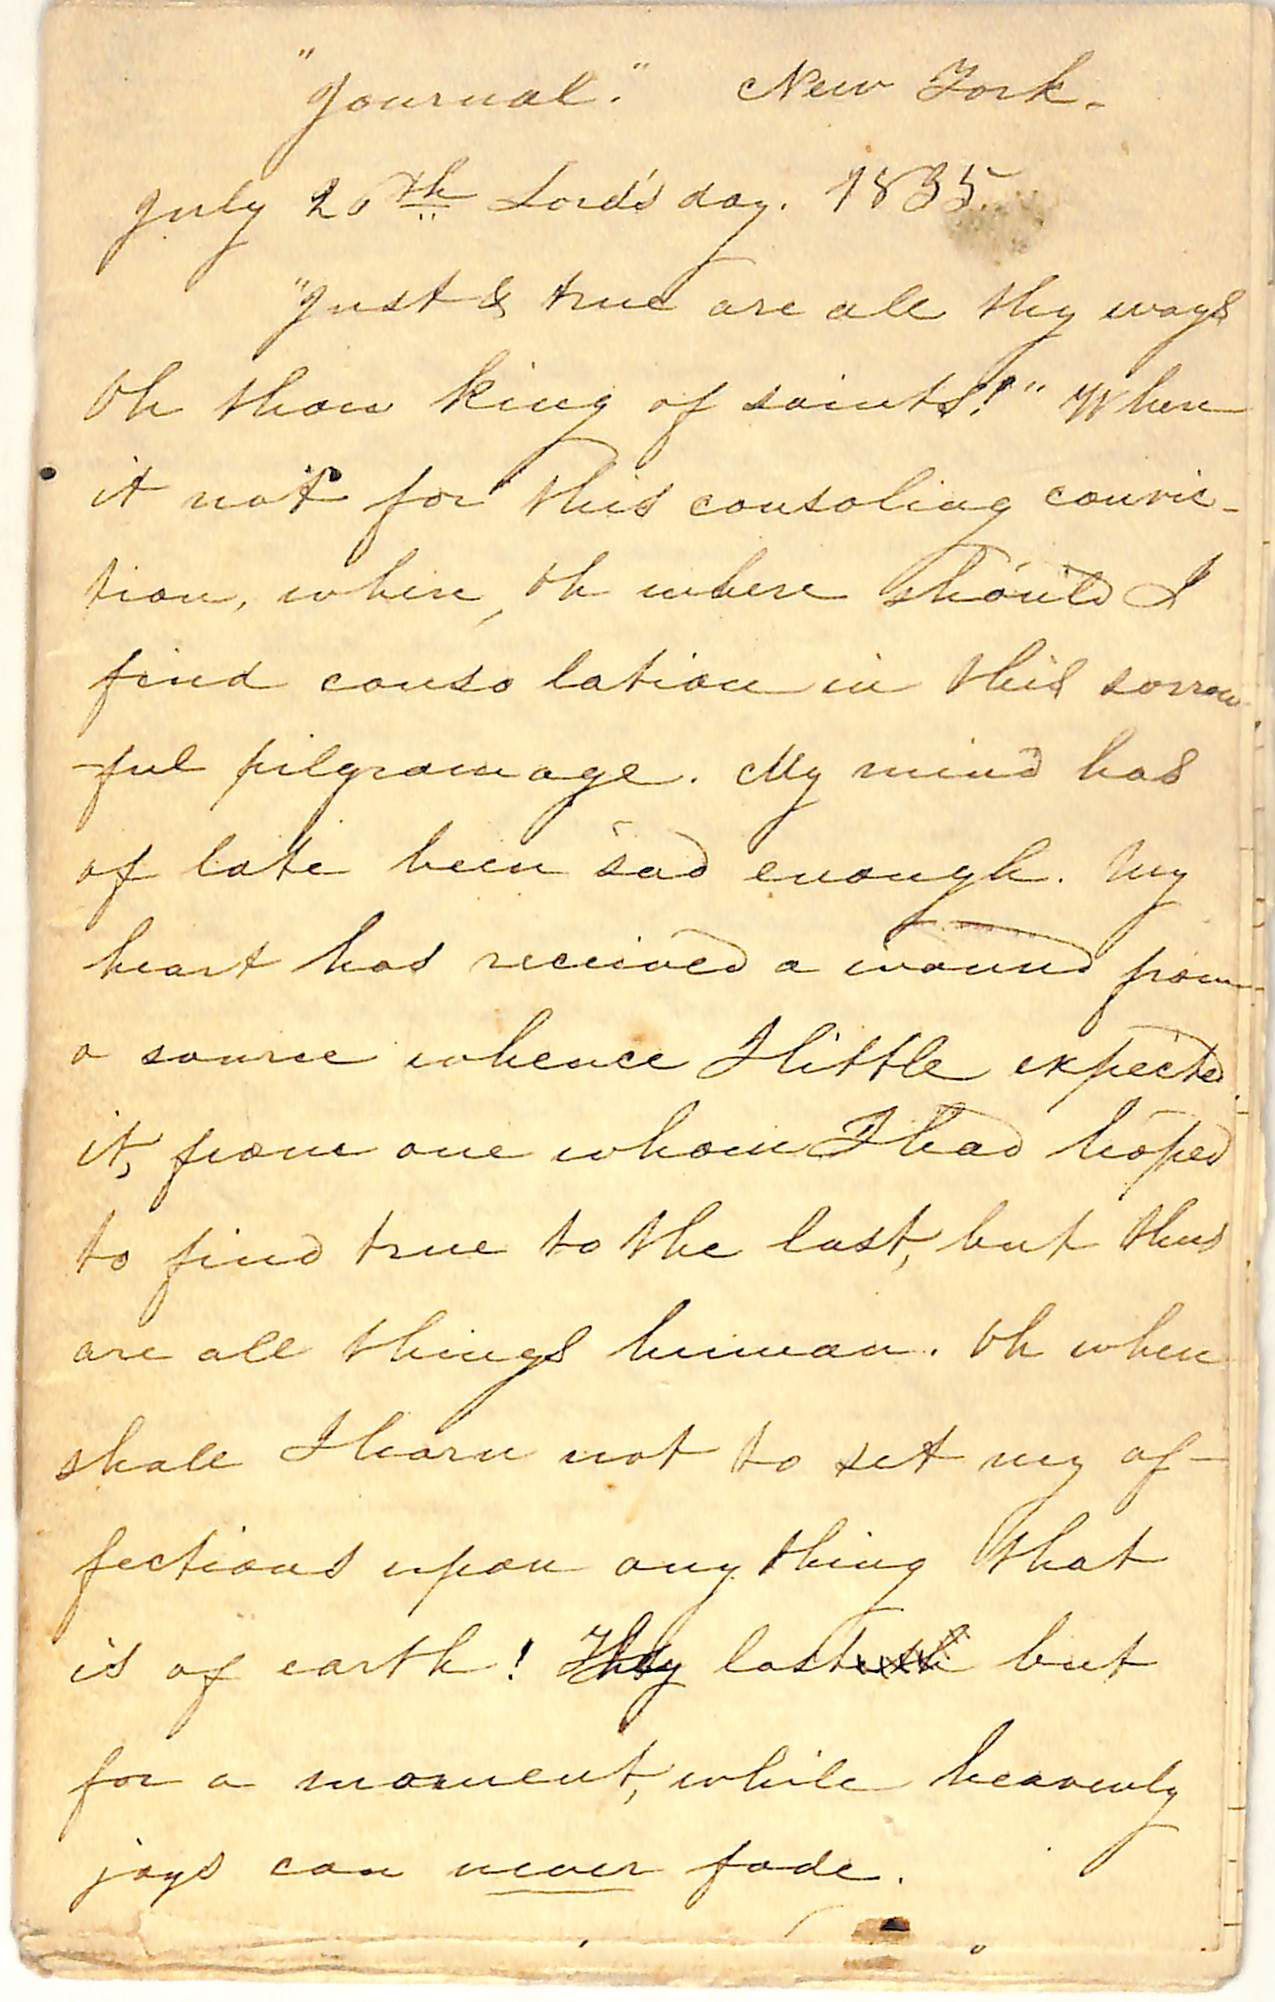 "Journal." New York.
July 20th Lord's day. 1835.
"Just & true are all thy ways
Oh thou king of saints!" Where
it not for this consoling convic-
tion, where, Oh where should I
find consolation in this sorrow
-ful pilgramage. My mind has
of late been sad enough. My
heart has received a wound from
a source whence I little expected
it, from one whom I had hoped
to find true to the last, but thus
are all things human. Oh when
shall I learn not to set my af-
fections upon any thing that
is of earth! They last but
for a moment, while heavenly
joys can never fade.